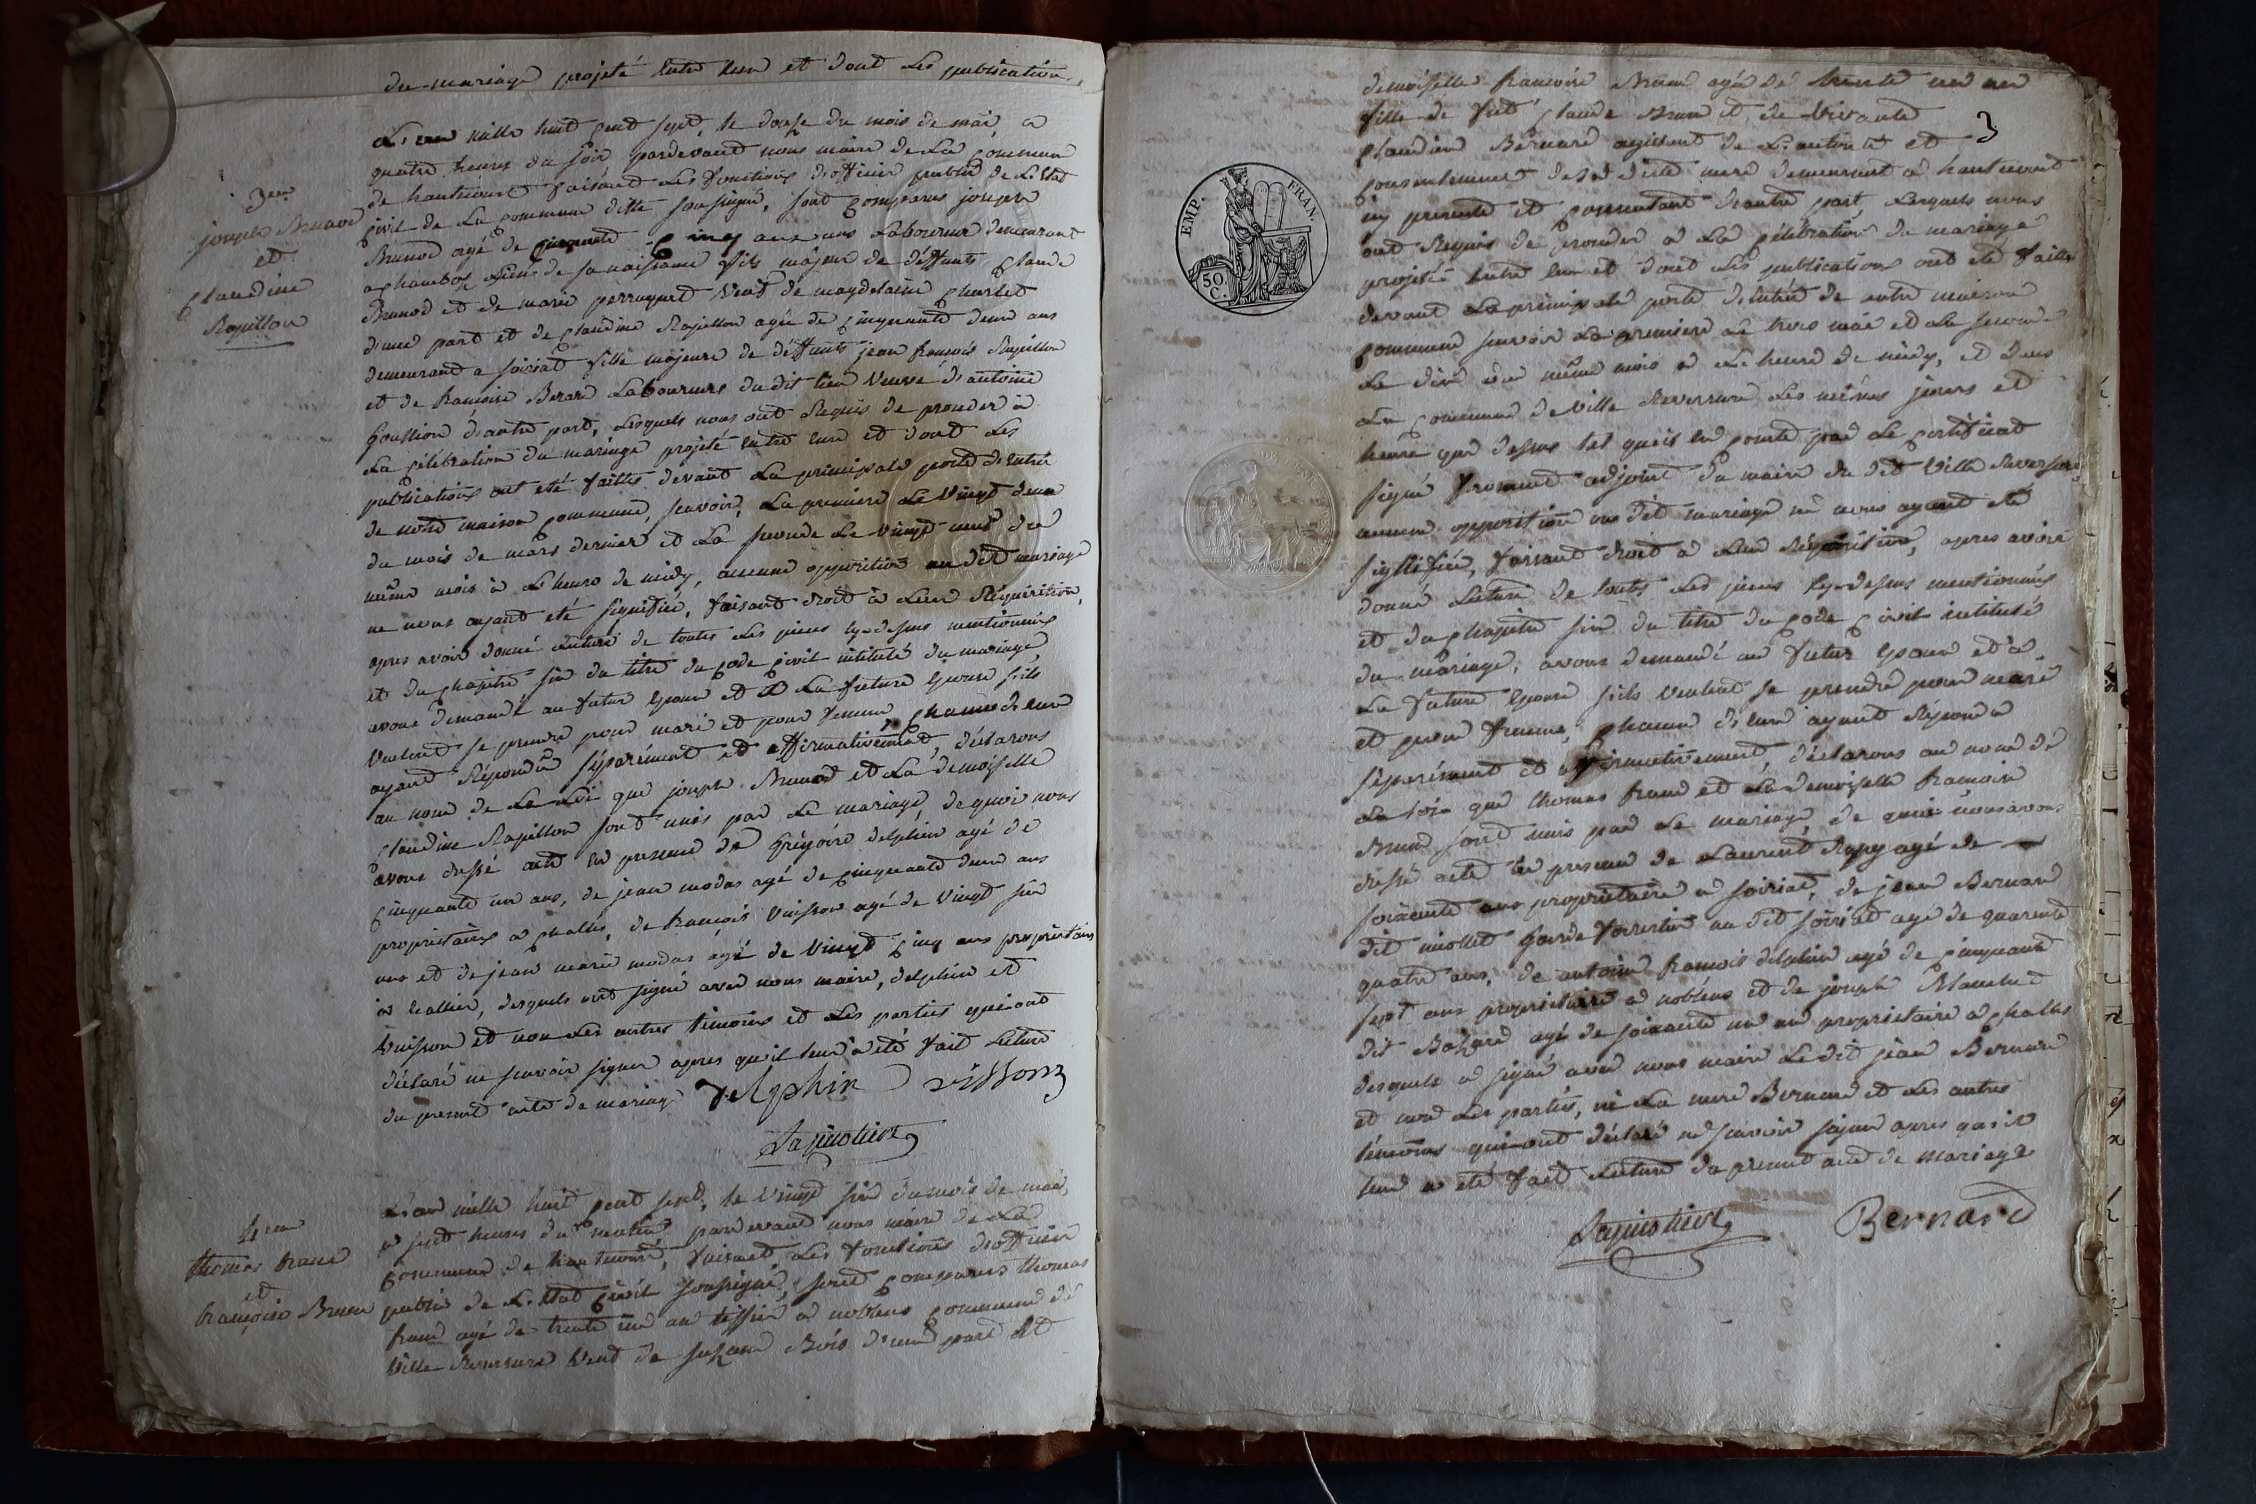 du mariage projeté entre eux et dont les publications
3em
joseph Brunod
et
Claudine
Rapillon
L'an mille huit cent sept, le douze du mois de mai, a
quatre heures du soir pardevant nous maire de la commune
de hautecourt faisant les fonctions d'officier public de L'Etat
civil de la commune ditte soussigné, sont comparus joseph
Brunod agé de cinquante cinq ans Laboureur demeurant
a chambod Lieu de sa naissance fils majeur de deffunts Claude
Brunod et de marie veuf de magdelaine
d'une part et de Claudine Rapillon agée de cinquante deux ans
demeurant a soiriat fille majeure de deffunts jean françois Rapillon
et de françoise Berard Laboureurs du dit lieu veuve d'antoine
d'autre part, Lesquels nous ont Requis de proceder à
La célébration du mariage projeté entre eux et dont Les
publications ont eté faittes devant La principale porte d'entrée
de notre maison commune, scavoir, La premiere Le vingt deux
du mois de mars dernier et La seconde Le vingt neuf du
même mois à L'heure de midy, aucune opposition au dit mariage
ne nous ayant eté signifiée, faisant droit à Leur Réquisition,
apres avoir donné Lecture de toutes Les pieces cy-dessus mentionnées
et du chapitre six du titre du Code Civil intitulé du mariage,
avons demandé au futur epoux et a La future epouse s'ils
veulent se prendre pour mari et pour femme, chacun d'eux
ayant Répondu séparément et affirmativement, déclarons
au nom de La Loi que joseph Brunod et La demoiselle
Claudine Rapillon sont unis par Le mariage, de quoi nous
avons dressé acte en presence de Grégoire delphin agé de
cinquante un ans, de jean modas agé de cinquante deux ans
propriétaires a challes, de françois vuisson agé de vingt six
ans et de jean marie modas agé de vingt cinq ans propriétaires
a , desquels ont signé avec nous maire, delphin et
vuisson et non Les autres témoins et Les parties qui ont
déclaré ne scavoir signer apres qu'il leur a été fait Lecture
du present acte de mariage Delphin vissons
4em
thomas franc
et
françoise Brun
L'an mille huit cent sept, le vingt six du mois de mai,
a sept heures du matin pardevant nous maire de La
commune de hautecourt, faisant Les fonctions d'officier
public de L'Etat civil soussigné, sont comparus thomas
franc agé de trente un an tissier a noblens commune de
ville Reversure veuf de suzane Bois d'une part et
3
EMP. FRAN.
50 C.
demoiselle françoise Brun agée de trente un an
fille de feu Claude Brun et de vivante
Claudine Bernard agissant de L'autorité et
consentement de sa ditte mere demeurant a hautecourt
icy presente et consentante d'autre part Lesquels nous
ont Requis de proceder a La célébration du mariage
projeté entre eux et dont Les publications ont eté faittes
devant La principale porte d'entrée de notre maison
commune scavoir La premiere Le trois mai et La seconde
Le dix du même mois a L'heure de midy, et dans
La commune de ville Reversure Les mêmes jours et
heure que dessus tel qu'il en conste par Le certificat
signé adjoint du maire du dit ville Reversure
aucune opposition au dit mariage ne nous ayant eté
signifiée, faisant droit a Leur Réquisition, apres avoir
donné Lecture de toutes Les pieces cy-dessus mentionnées
et du chapitre six du titre du Code Civil intitulé
du mariage, avons demandé au futur epoux et à
La future epouse s'ils veulent se prendre pour mari
et pour femme, chacun d'eux ayant Répondu
séparément et affirmativement, déclarons au nom de
La loi que thomas franc et La demoiselle françoise
Brun sont unis par Le mariage, de quoi nous avons
dressé acte en presence de Laurent agé de
soixante ans propriétaire a soiriat, de jean Bernard
dit Garde forestier au dit soiriat agé de quarante
quatre ans, de antoine françois delphin agé de cinquante
sept ans propriétaire a noblens et de joseph
dit agé de soixante un an propriétaire a challes
desquels a signé avec nous maire Le dit jean Bernard
et non Les parties, ni La mere Bernard et Les autres
témoins qui ont déclaré ne scavoir signer apres qu'il
leur a eté fait Lecture du present acte de mariage
Bernard